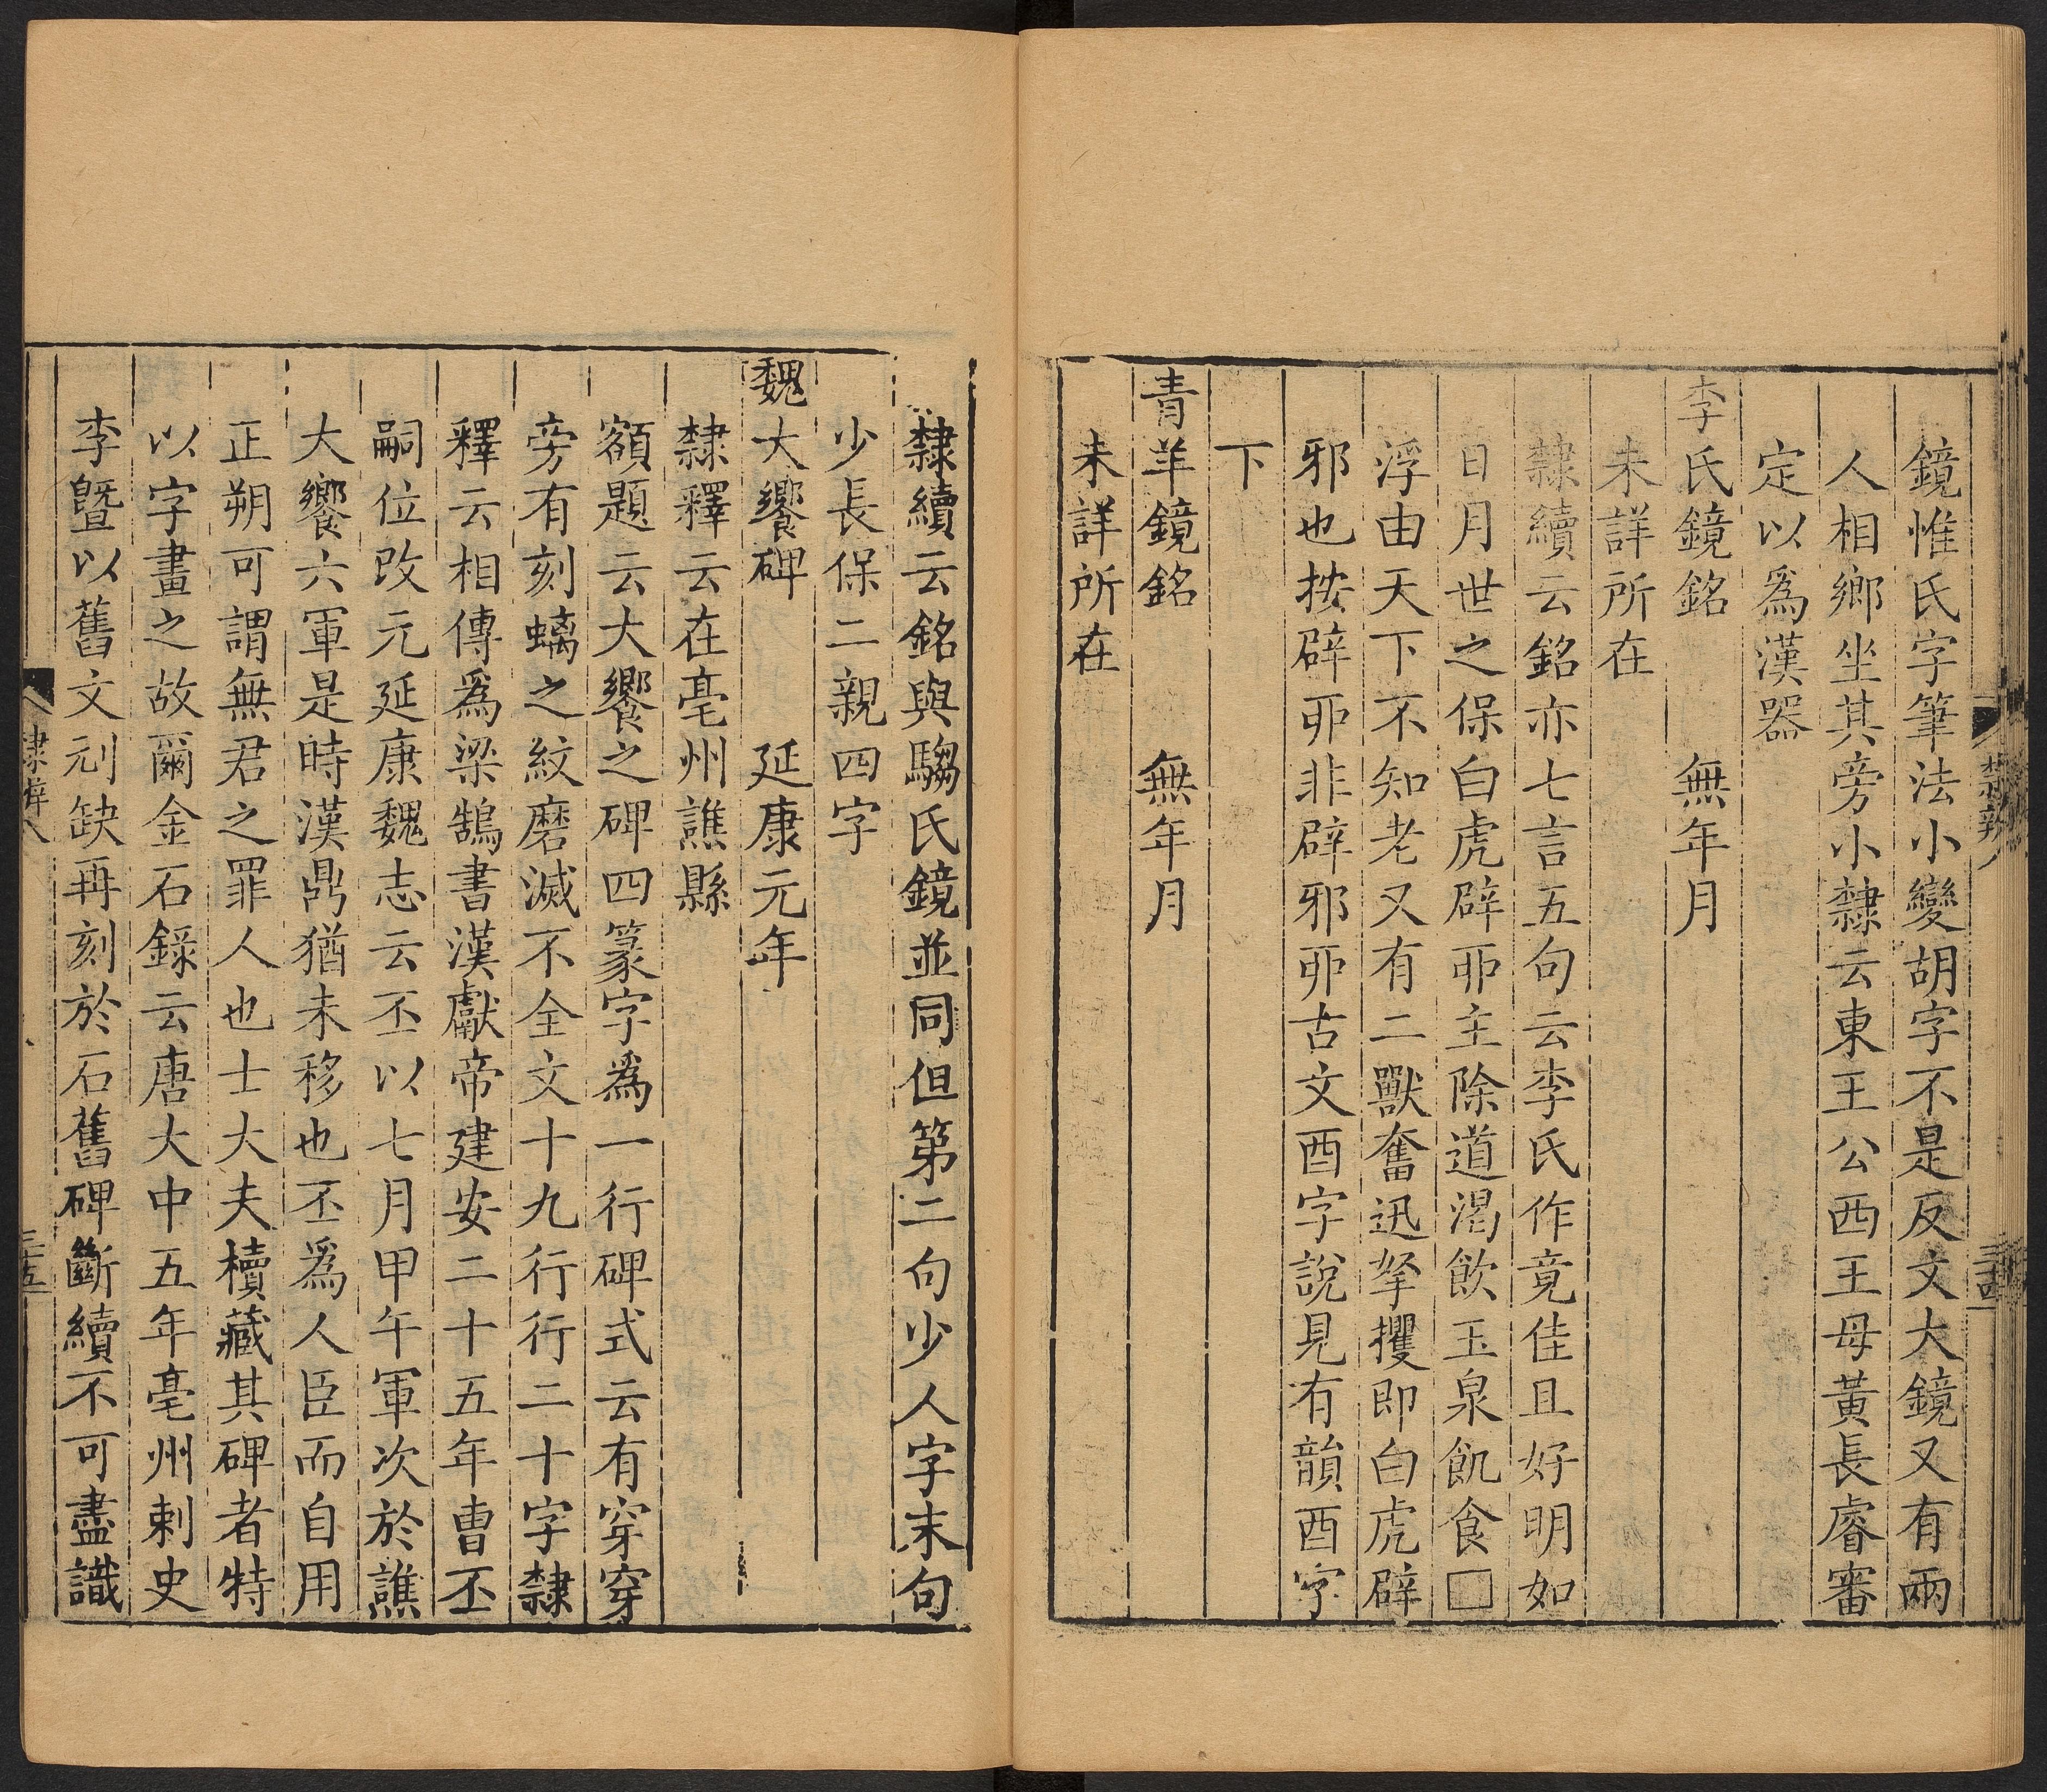 鏡惟氏字筆法小變胡字不是反文大鏡又有兩
人相鄉坐其旁小隸云東王公西王母黃長睿審
定以爲漢器
李氏鏡銘 無年月
未詳所在
隸續云銘亦七言五句云李氏作竟佳且好明如
日月世之保白虎辟丣主除道渴飲玉泉飢食□
浮由天下不知老又有二獸奮迅拏攫即白虎辟
邪也按辟丣非辟邪丣古文酉字說見有韻酉字
下
青羊鏡銘 無年月
未詳所在
隸續云銘與騶氏鏡並同但第二句少人字末句
少長保二親四字
魏大饗碑 延康元年
隸釋云在亳州譙縣
額題云大饗之碑四篆字爲一行碑式云有穿穿
旁有刻螭之紋磨滅不全文十九行行二十字隸
釋云相傳爲梁鵠書漢獻帝建安二十五年曹丕
嗣位改元延康魏志云丕以七月甲午軍次於譙
大饗六軍是時漢鼎猶未移也丕爲人臣而自用
正朔可謂無君之罪人也士大夫櫝藏其碑者特
以字畫之故爾金石錄云唐大中五年亳州刺史
李曁以舊文刓缺再刻於石舊碑斷續不可盡識
隸辨八
三十五